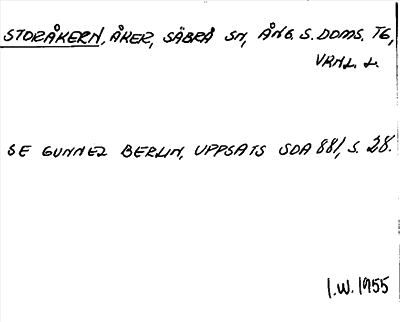 STORÅKERN, ÅKER, SÄBRÅ SN, ÅNG. S. DOMS. TG,
VRNL. L.
SE GUNNEL BERLIN, UPPSATS SOA 881, S. 28.
I.W. 1955